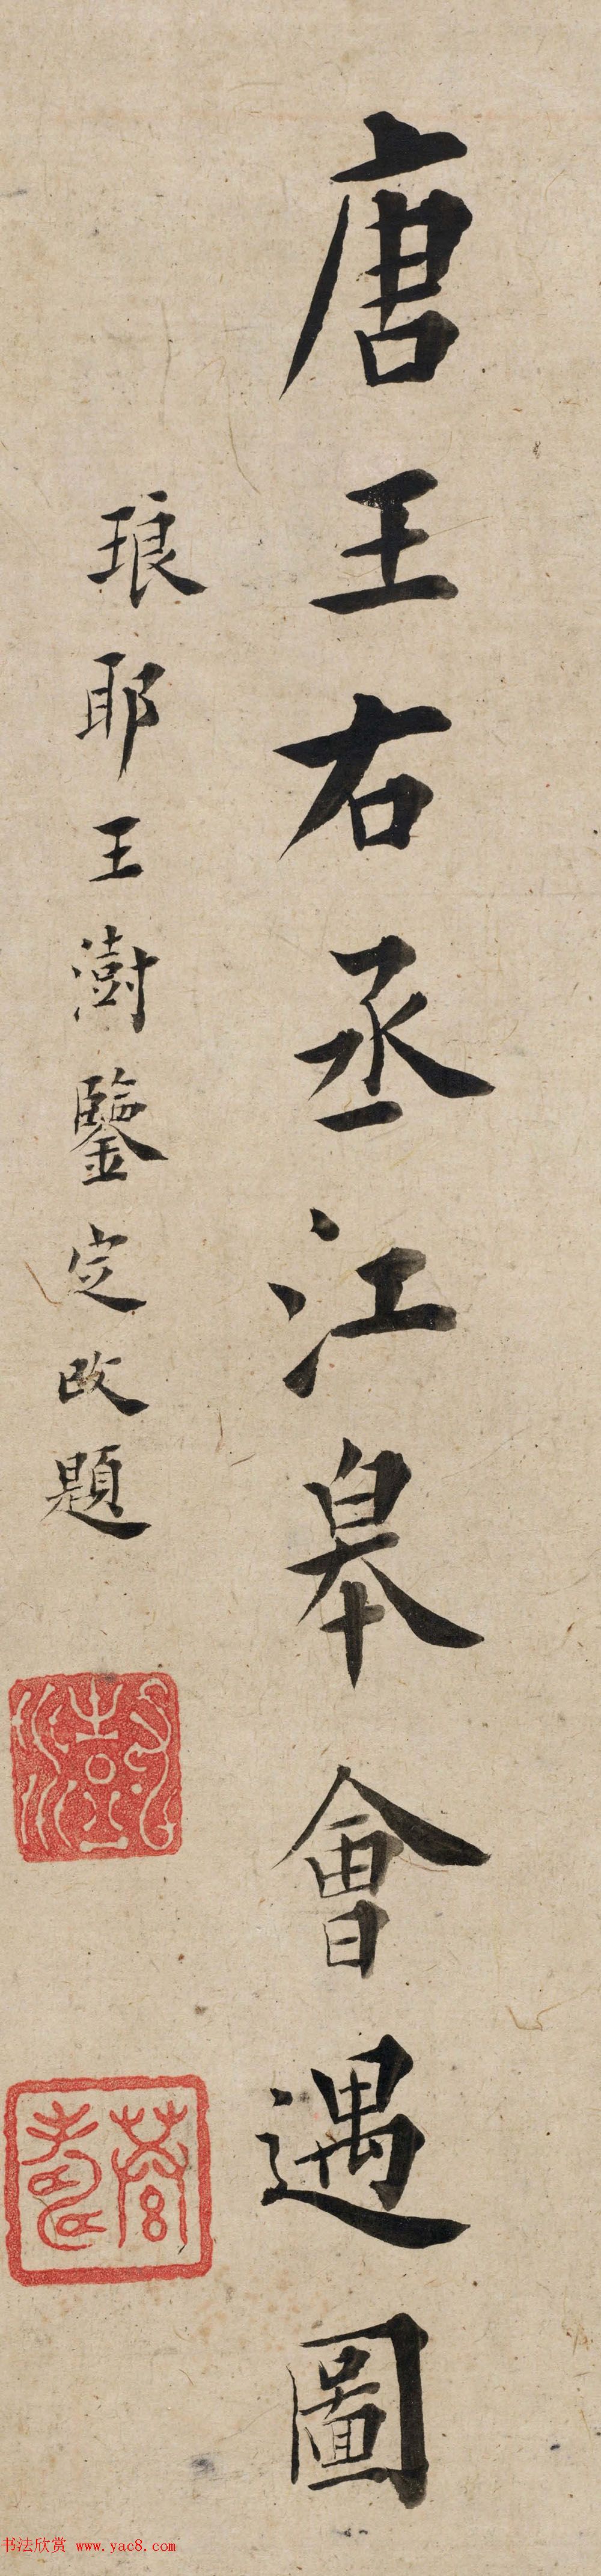 唐王右丞江皋會遇圖
琅耶王澍鑒定改題
澍
書法欣赏 www.yac8.com